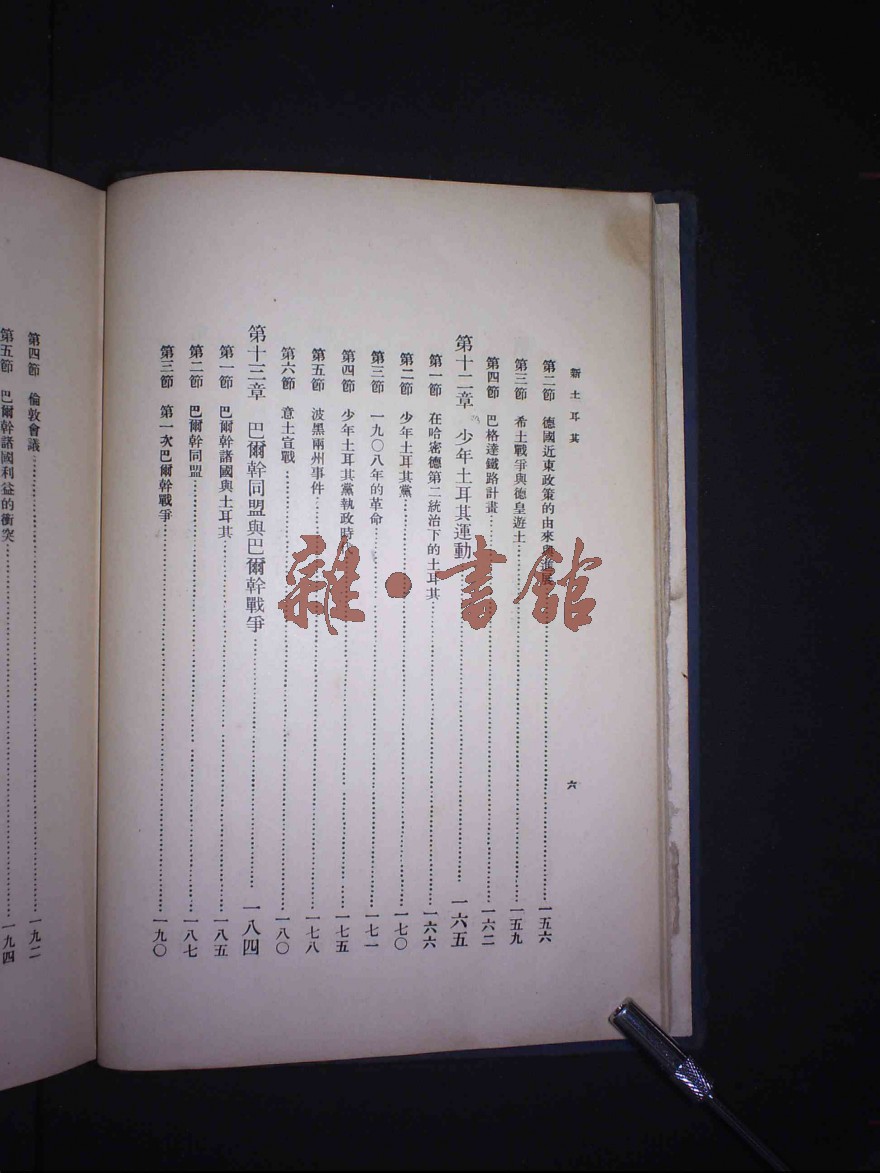 新土耳其
六
第二節 德國近東政策的由來與進展 一五六
第三節 希土戰爭與德皇遊土 一五九
第四節 巴格達鐵路計畫 一六二
第十二章 少年土耳其運動 一六五
第一節 在哈密德第二統治下的土耳其 一六六
第二節 少年土耳其黨 一七〇
第三節 一九〇八年的革命 一七一
第四節 少年土耳其黨執政時 一七五
第五節 波黑兩州事件 一七八
第六節 意土宣戰 一八〇
第十三章 巴爾幹同盟與巴爾幹戰爭 一八四
第一節 巴爾幹諸國與土耳其 一八五
第二節 巴爾幹同盟 一八七
第三節 第一次巴爾幹戰爭 一九〇
第四節 倫敦會議 一九二
第五節 巴爾幹諸國利益的衝突 一九四
雜·書館